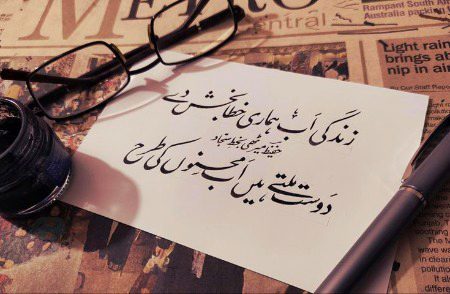 METRO
Central
Rampant South
Australia
Light rain
brings
nip in air
زندگی اب ہماری خطا بخش دے
حفیظ میرٹھی بخط سجاد
دوست ملتے ہیں اب محسنوں کی طرح